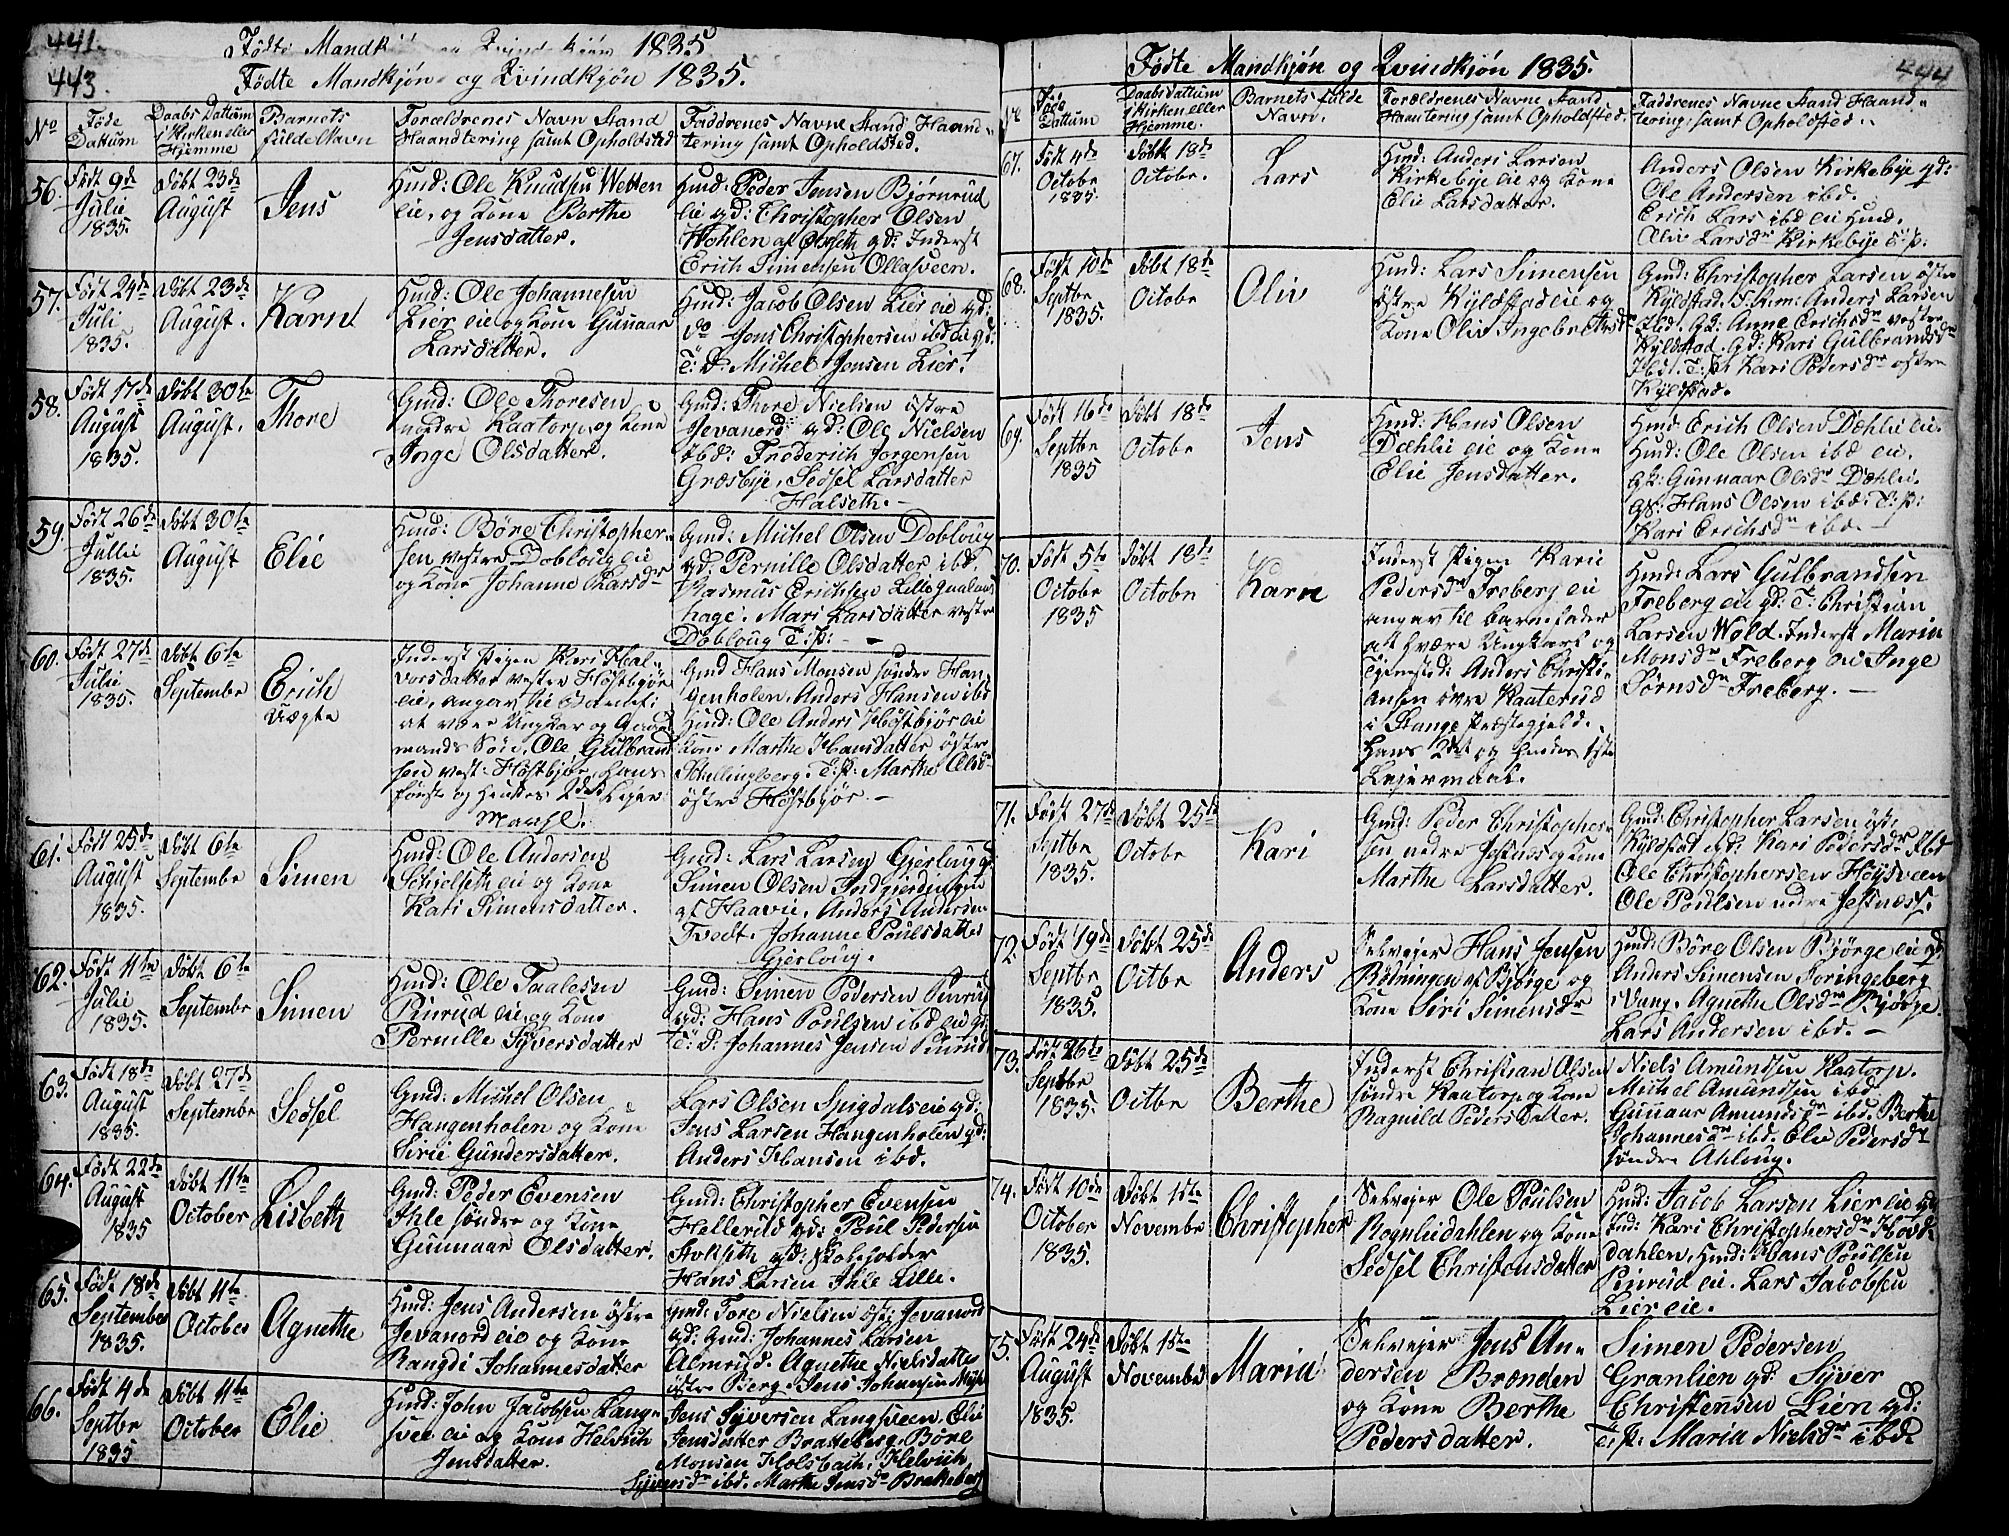 441.
Fødte Mandkjøn og Qvindekjøn 1835
443.
Fødte Mandkjøn og Qvindkjøn 1835.
No
Føde Dattum
Daabs Dattum i Kirken eller Hjemme
Barnets fulde Navn
Forældrenes Navn Stand Haandtering samt Opholdsted
Faddrenes Navne Stand Haandtering samt Opholdsted.
56.
Født 9de Julie 1835.
Døbt 23de August
Jens
Husd: Ole Knudsen Wetten
eie, og Kone Berthe
Jensdatter.
Husd: Peder Jensen Bjørnrud
eie gd: Christopher Olsen
Wohlen af Olsseth gd: Inderst
Erich Simensen Ollasveen.
57.
Født 24de Juli 1835.
Døbt 23de August.
Karn
Husd: Ole Johannesen
Lier eie og Kone Gunnaar
Larsdatter.
Husd: Jacob Olsen Lier eie gd:
do Jens Christophersen ibd eie gd:
T: D. Michel Jensen Lier.
58.
Født 17de August 1835.
Døbt 30te August.
Thore
Gmd: Ole Thoresen
nordre Kaatorp og Kone
Inge Olsdatter.
Gmd: Thore Nielsen östre
Jevanord gd: Ole Nielsen
ibd: Frederich Jørgensen
Græsbye. Sedsel Larsdatter
Halseth.
59.
Født 26de Julie 1835.
Døbt 30te August
Elie
Husd: Børe Christopher-
sen vestre Dobloug eie
og Kone Johanne Larsdr
Gmd: Michel Olsen Dobloug
gd. Pernille Olsdatter ibd.
Rasmus Erichsen Lille
hage. Mari Larsdatter vestre
Dobloug T: p:
60.
Født 27de Julie 1835.
Døbt 6te Septembr
Erich
Uægte
Inderst Pigen Kari Hal-
vorsdatter vestre Höstbjör
eie, angav til Barnef:
at være Ungkar og Gaard
mands Søn, Ole Gulbrand
sen vest: Höstbjør, hans
første og hendes 2det Leier
maahl.
Gmd Hans Monsen søndre Han
genholen. Anders Hansen ibd.
Husd: Ole Anders Höstbjör eie
Kone Marthe Hansdatter östre
T: p: Marthe Olsdr
östre Höstbjör.
61.
Født 25de August 1835.
Døbt 6te Septembr
Simen
Husd: Ole Andersen
Schielseth eie og Kone
Kari Simensdatter.
Gmd: Lars Larsen Gjerloug gd.
Simen Olsen
af Haavie. Anders Andersen
Tvedt. Johanne Poulsdatter
Gjerloug.
62.
Født 11te Julie 1835.
Døbt 6te Septembr
Simen
Husd: Ole Taalesen
Pinrud eie og Kone
Pernille Syversdatter
Gmd: Simen Pedersen Pinrud
gd: Hans Poulsen ibd eie gd:
T: D: Johannes Jensen Pinrud
63.
Født 18de August 1835.
Døbt 27de Septembr
Sedsel
Gmd: Michel Olsen
Hangenholen og Kone
Sirie Gundersdatter.
Lars Olsen Spigdals eie gd:
Jens Larsen Hangenholen gd:
Anders Hansen ibd.
64.
Født 22de August 1835
Døbt 11te October
Lisbeth
Gmd: Peder Evensen
Ihle søndre og Kone
Gunnaar Olsdatter.
Gmd: Christopher Evensen
Hellerud gd: Poul Pedersen
gd: Skoleholder
Hans Larsen Ihle Lille.
65.
Født 18de September 1835.
Døbt 11te October
Agnethe
Husd: Jens Andersen östre
Jevanord eie og Kone
Rangdi Johannesdatter
Gmd: Tore Nielsen öst: Jevanord
gd: Gmd: Johannes Larsen
Almrud. Agnethe Nielsdatter
östre Berg. Jens Johansen
66.
Født 4de Septbr 1835
Døbt 11te October
Elie
Husd: John Jacobsen Lang-
svee eie og Kone Helvich
Jensdatter.
Jens Syversen Langsveen, Elie
Jensdatter Bratteberg. Børe
Monsen Holsbach. Helvich
Syversdr ibd. Marthe Jensdr Bratteberg
444
Fødte Mandkjøn og Qvindkjøn 1835.
No
Føde Dattum
Daabsdattum i Kirken eller Hjemme.
Barnets fulde Navn.
Forældrenes Navne Stand Haandtering samt Opholdsted.
Faddrenes Navne Stand Haandtering samt Opholdsted.
67.
Født 4de Octobr 1835.
Døbt 18de Octobr.
Lars
Husd: Anders Larsen
Kirkebye eie og Kone
Elie Larsdatter.
Anders Olsen Kirkebye gd:
Ole Andersen ibd.
Erich Lars ibd eie Husd.
Oliv Larsdr Kirkebye T: p:
68.
Født 10de Septbr 1835.
Døbt 18de Octobr
Oliv
Husd: Lars Simensen
östre Kyldstad eie og
Kone Oliv Ingebretsdr
Gmd: Christopher Larsen östre
Kyldstad. S. K. m: Anders Larsen
Ibd. gd: Anne Erichsdr vestre
Kyldstad. gd: Kari Gulbrandsdr
Ibd. T: p: Kari Pedersdr östre
Kyldstad.
69.
Født 16de Septbr 1835
Døbt 18de Octobr
Jens
Husd: Hans Olsen
Dæhlie eie og Kone
Elie Jensdatter.
Husd Erich Olsen Dæhlie eie.
Husd: Ole Olsen ibd eie.
gd: Gunnaar Olsdr Dæhlie.
gd: Hans Olsen ibd. T: p:
Kari Erichsdr ibd.
70.
Født 5te October 1835
Døbt 18de Octobr
Karn
Inderst Pigen Karie
Pedersdr Freberg eie
angav til barnefader
att hvære Ungkarl og
Tjenestd: Anders Christi-
ansen övre Kaaterud
i Stange Præstegjeld.
Hans 2det og hendes 1ste
Leiermaal.
Husd: Lars Gulbrandsen
Freberg eie gd: T: Christian
Larsen Wold. Inderst Marin
Monsdr Freberg eie Inge
Børnsdr Freberg.
71.
Født 27de Septbr 1835.
Døbt 25de Octobr
Kari
Gmd: Peder Christopher-
sen nedre Jesnes og Kone
Marthe Larsdatter.
Gmd: Christopher Larsen öst:
Kyldstad gd: Kari Pedersdr Ibd
Ole Christophersen Høysveen
Ole Poulsen nedre Jesnæss.
72.
Født 19de Septbr 1835.
Døbt 25de Octbr
Anders
Selveier Hans Jensen
Rødningen af Bjørge og
Kone Siri Simensdr
Husd: Børe Olsen Bjørge eie gd.
Anders Simensen Foringeberg
i Vang. Agnethe Olsdr Bjørge.
Lars Andersen ibd.
73.
Født 26de Septbr 1835.
Døbt 25de Octbr
Berthe
Inderst Christian Olsen
søndre Kaatorp og Kone
Ragnild Pedersdatter.
Niels Amundsen Kaatorp.
Michel Amundsen ibd.
Gunnaar Amundsdr ibd. Berthe
Johannesdr ibd. Elie Pedersdr
søndre Ahloug.
74.
Født 10de October 1835.
Døbt 1ste Novembr
Christopher
Selveier Ole Poulsen
Rognliedahlen og Kone
Sedsel Christensdatter
Husd: Jacob Larsen Lier eie gd
Ind: Kari Christophersdr
dahlen. Husd: Hans Poulsen
Pinrud eie. Lars Jacobsen
Lier eie.
75.
Født 24de August 1835.
Døbt 1ste November
Maria
Selveier Jens An-
dersen Brænden
og Kone Berthe
Pedersdatter.
Simen Pedersen
Granlien gd: Syver
Christensen Lien gd:
T: p: Maria Nielsdr ibd.